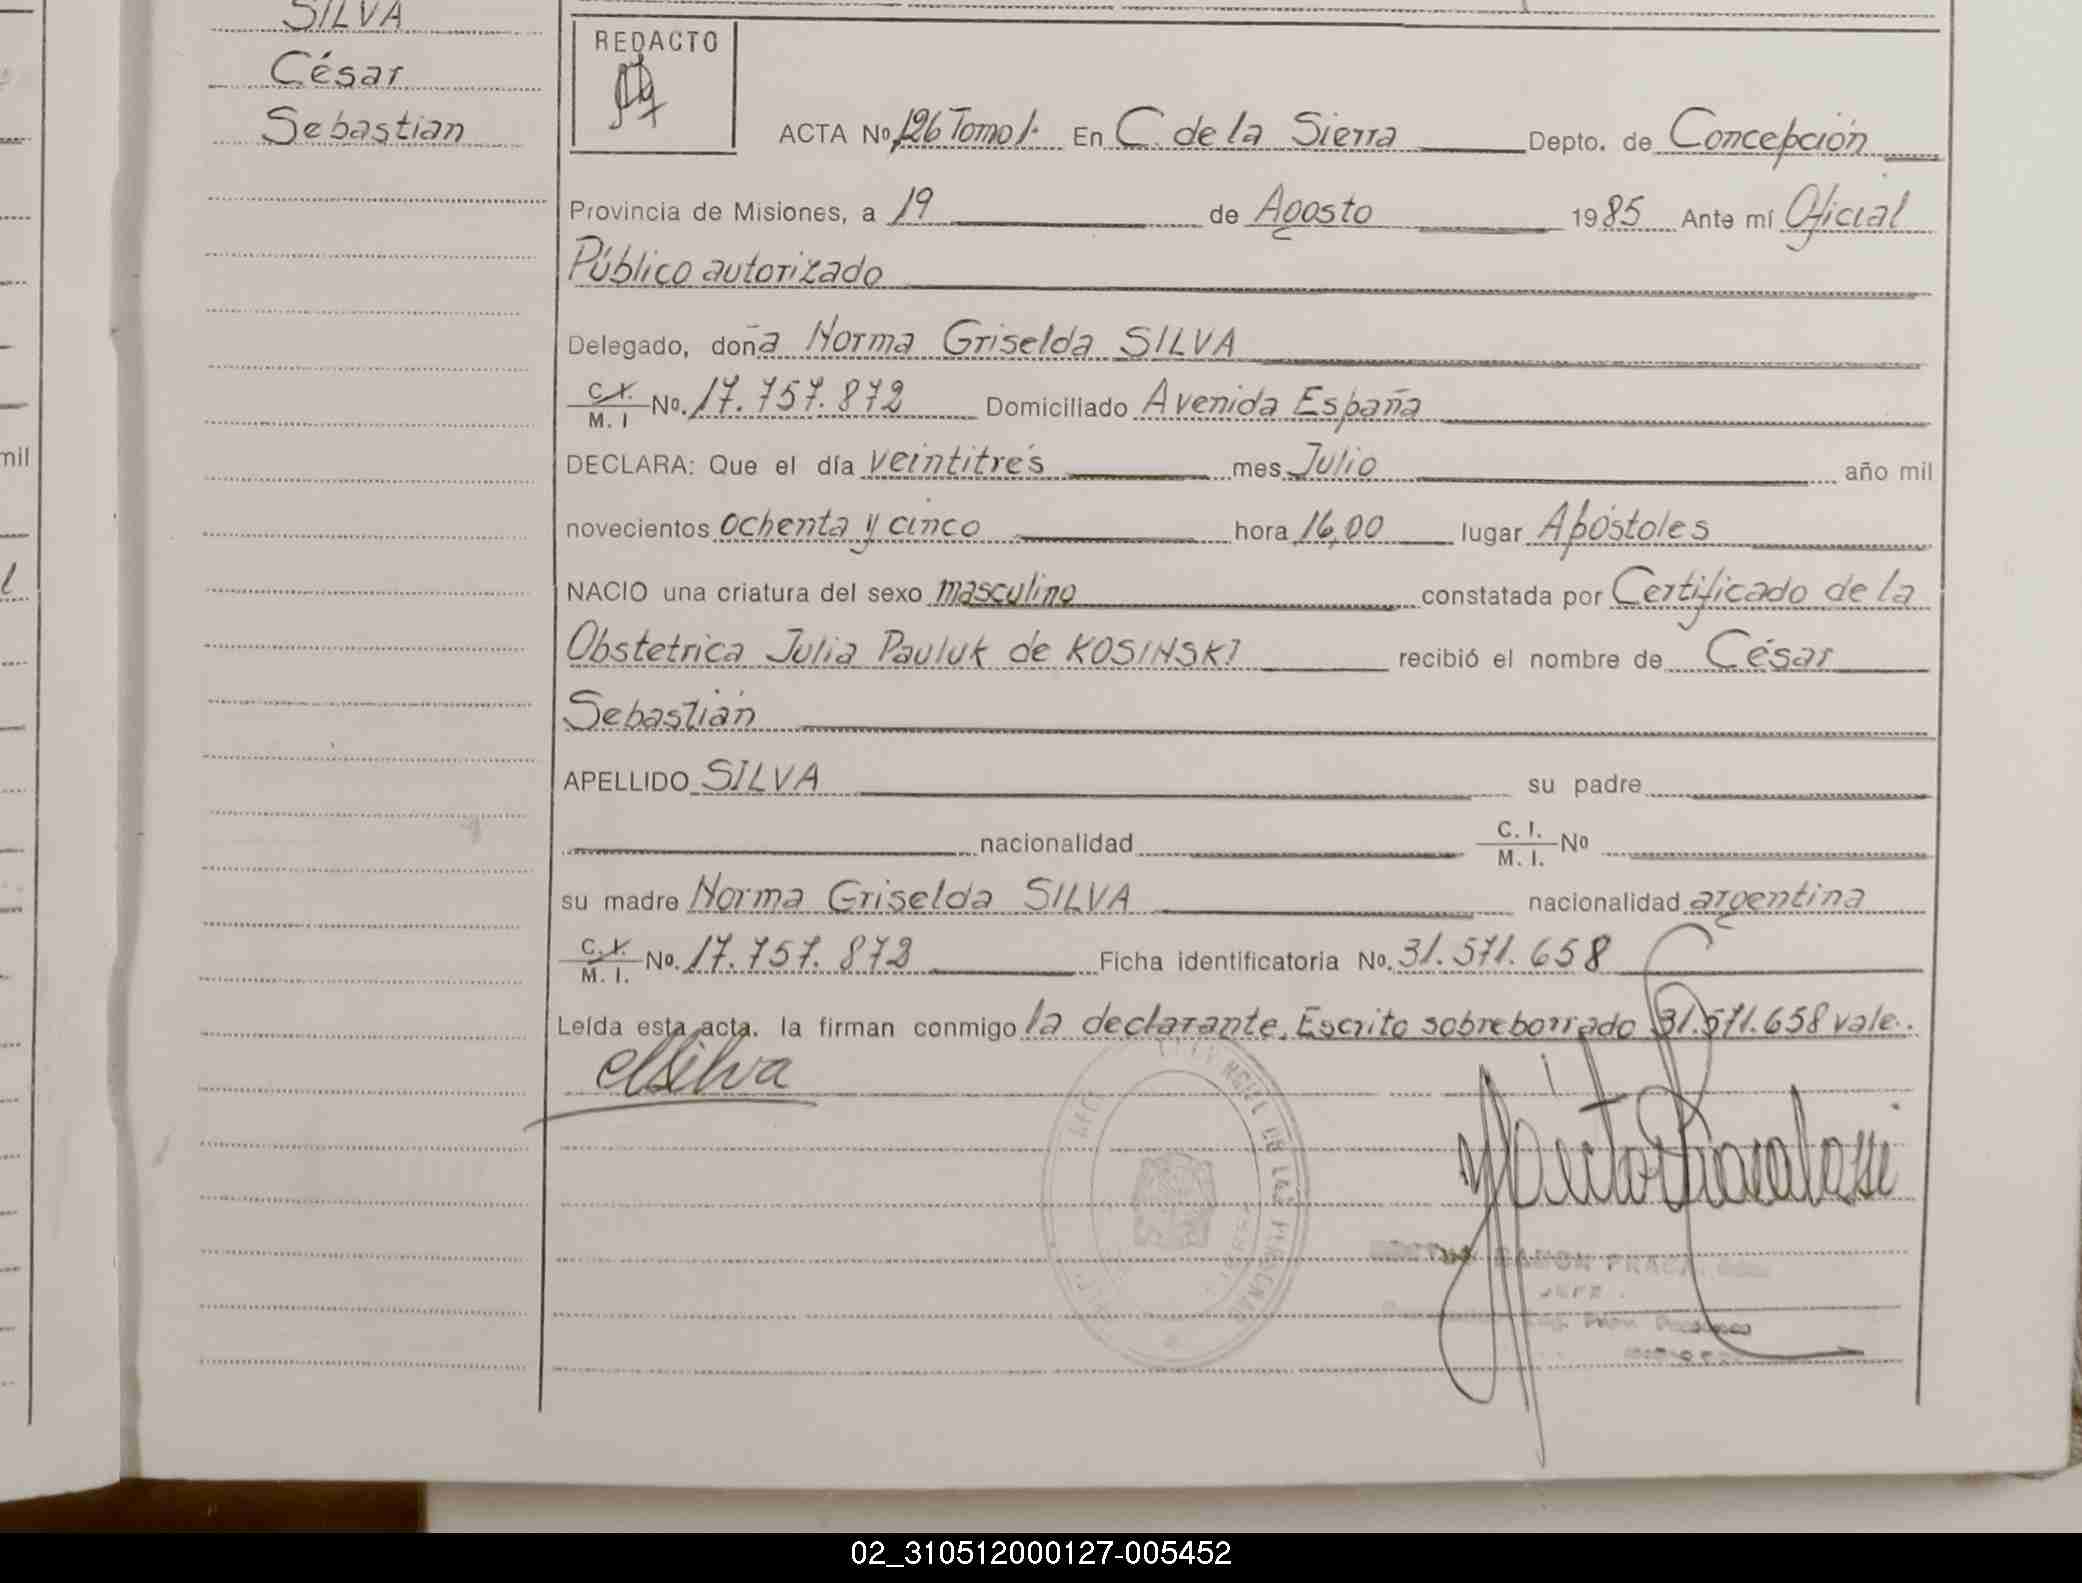 SILVA
César
Sebastián
REDACTO
ACTA Nº 126 Tomo I. En C. de la Sierra Depto. de Concepción
Provincia de Misiones, a 19 de Agosto 1985 Ante mí Oficial
Público autorizado
Delegado, doña Norma Griselda SILVA
C.I. M. I Nº. 17.757.872 Domiciliado Avenida España
DECLARA: Que el día veintitrés mes Julio año mil
novecientos ochenta y cinco hora 16,00 lugar Apóstoles
NACIO una criatura del sexo masculino constatada por Certificado de la
Obstetrica Julia Pauluk de KOSINSKI recibió el nombre de César
Sebastián
APELLIDO SILVA su padre
nacionalidad C. I. M. I. Nº
su madre Norma Griselda SILVA nacionalidad argentina
C.I. M. I. Nº. 17.757.872 Ficha identificatoria No. 31.571.658
Leída esta acta. la firman conmigo la declarante. Escrito sobreborrado 31.571.658 vale.
Silva
mil
02_310512000127-005452